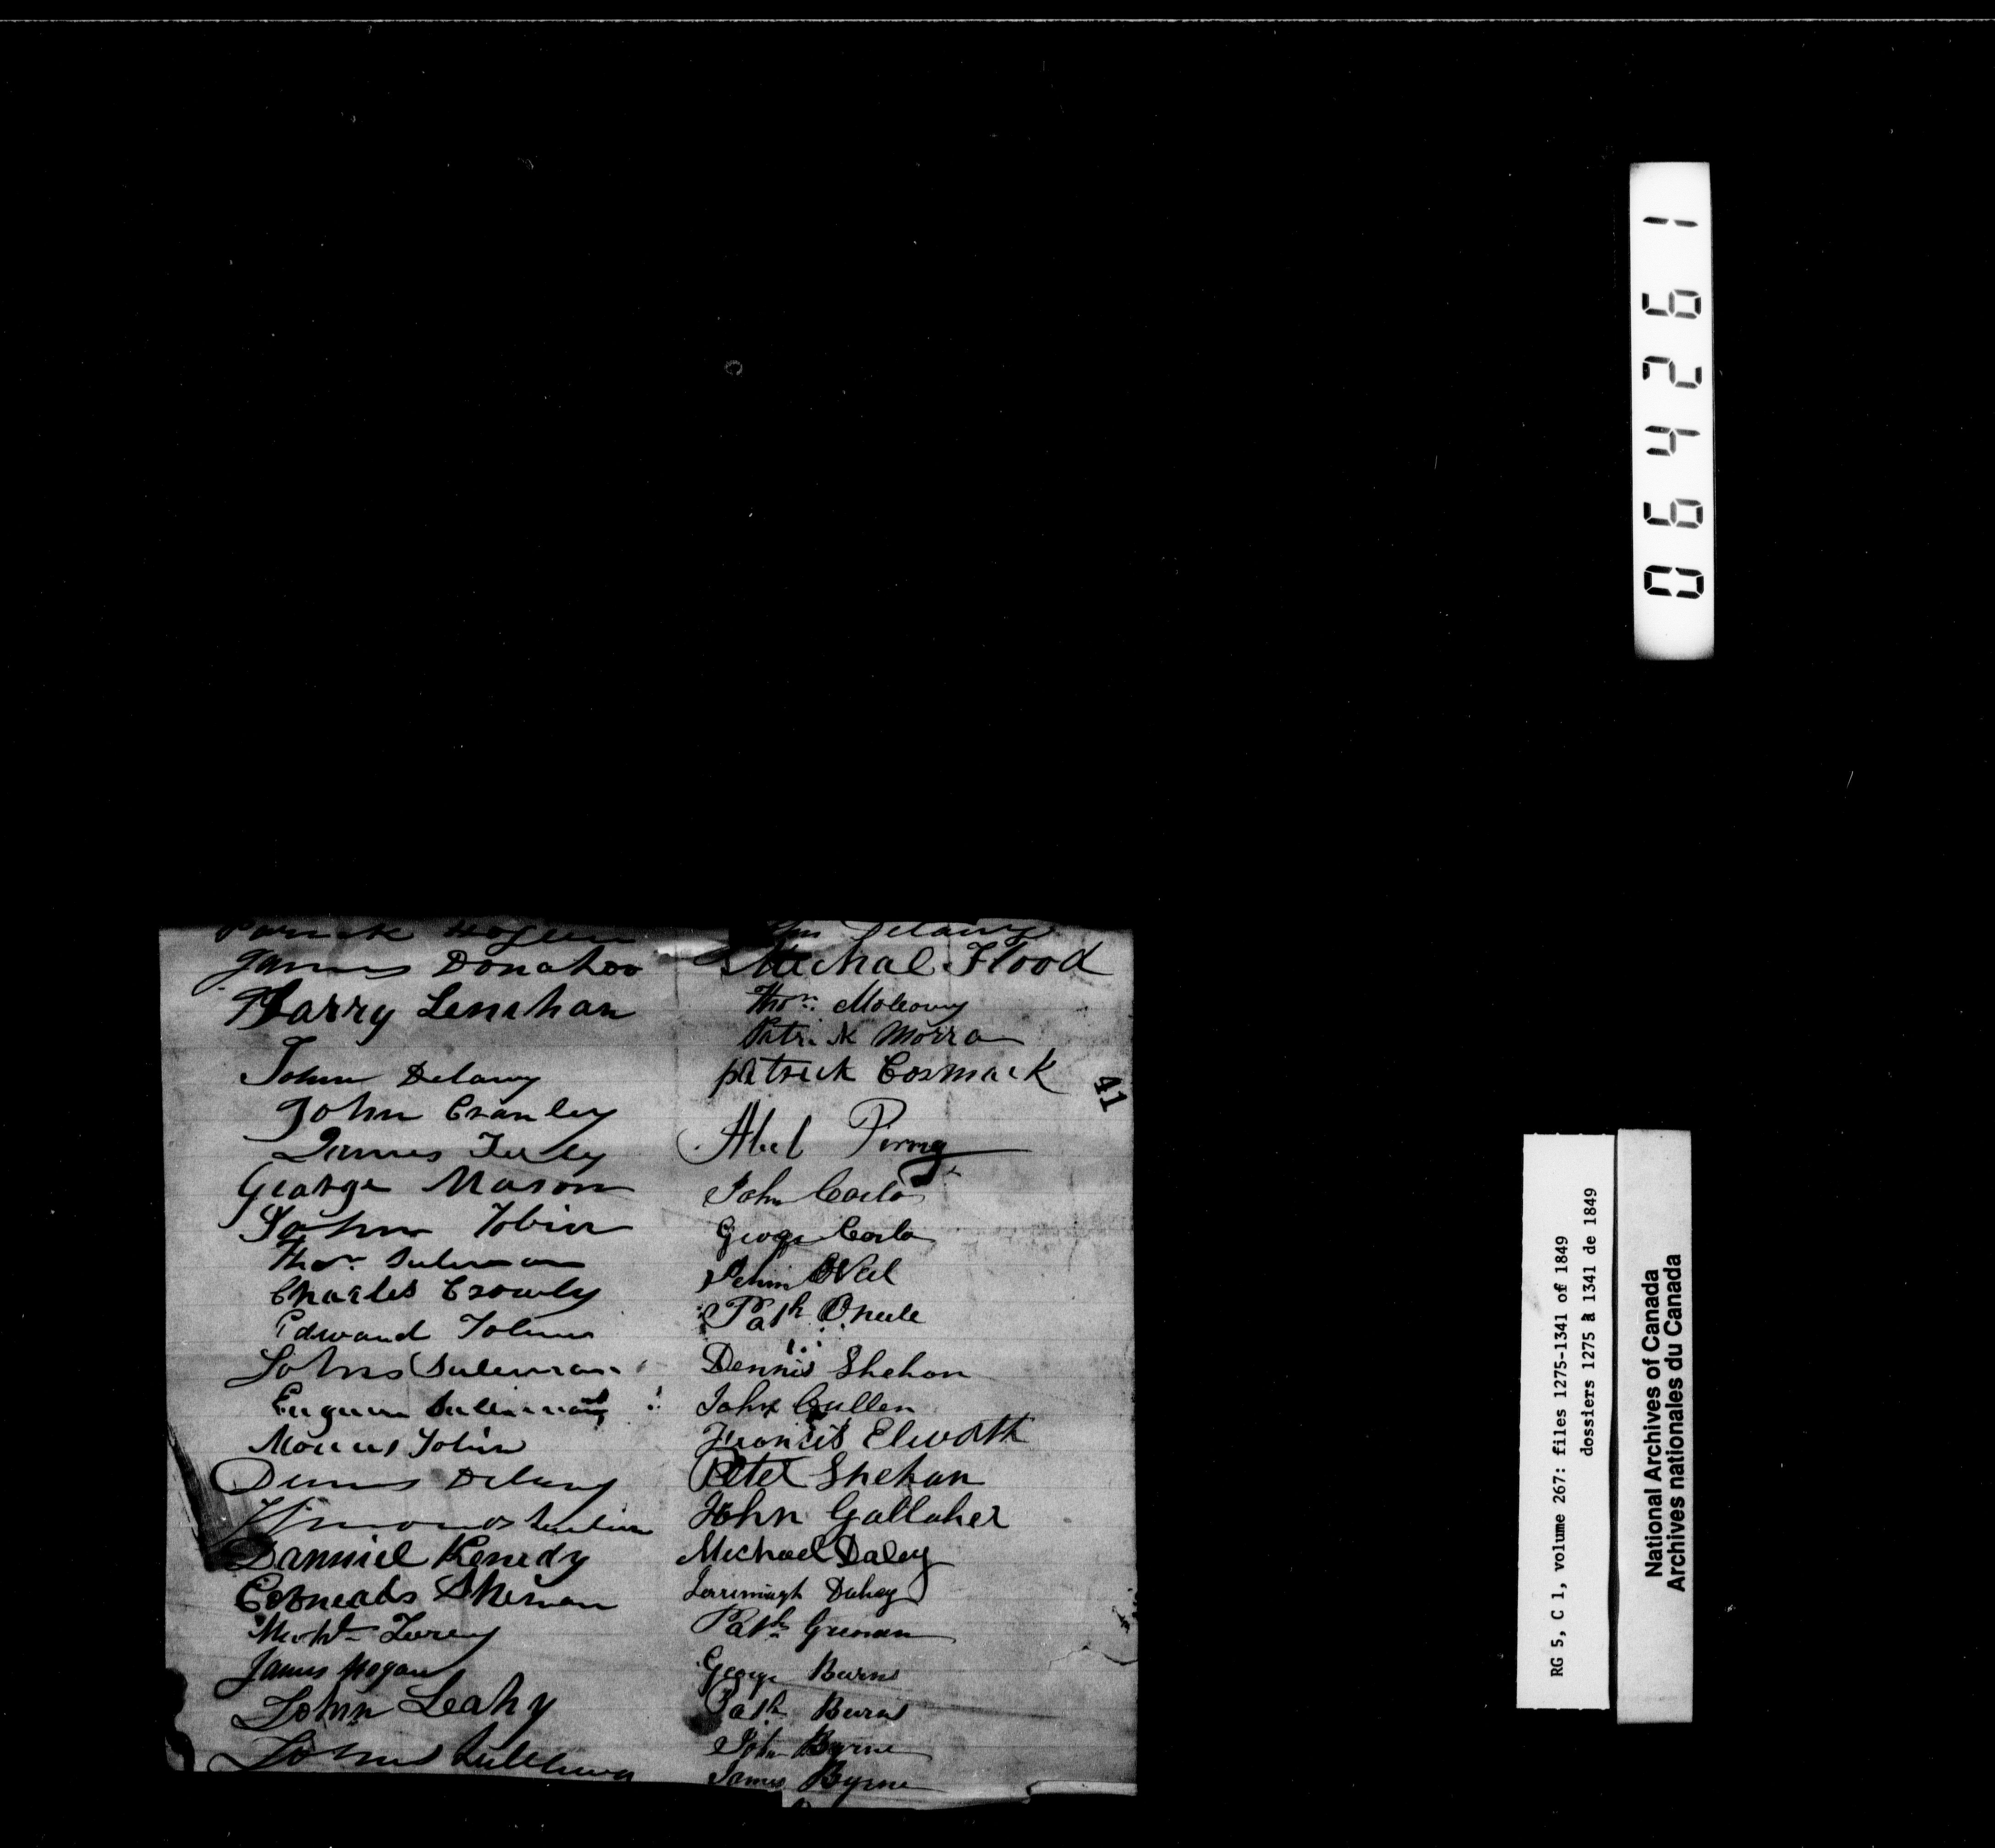 Patrick Hogan
James Donahoo
Harry Lenehan
John Delany
John Cranley
James
George Mason
John Tobin
Thos. Suleman
Charles Crowly
Edward Tobin
John Suleman
Eugene
Morris Tobin
Dennis Delany
Danniel Kenedy
Corneals
James Hogan
John Leahy
John
Delany
Michal Flood
Thos.
Patrick Morran
patrick Cormack
Abel
John Carlo
George Carlo
O Neil
Patk Oneele
Dennis Shehan
John Cullen
Francis Elworth
Peter Shehan
John Gallaher
Michael Daley
Patk
George Burns
Patk Burns
John Byrne
James Byrne
41
064261
RG 5, C 1, volume 267: files 1275-1341 of 1849
dossiers 1275 à 1341 de 1849
National Archives of Canada
Archives nationales du Canada